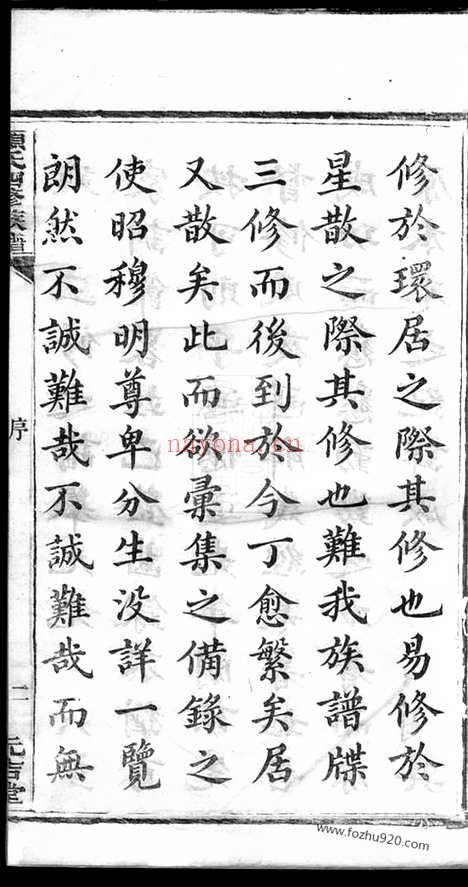 修於環居之際其修也易修於
星散之際其修也難我族譜牒
三修而後到於今丁愈繁矣居
又散矣此而欲彙集之備錄之
使昭穆明尊卑分生没詳一覽
朗然不誠難哉不誠難哉而無
氏四修族譜
序
二
元吉堂
nayona.cn
www.fozhu920.com